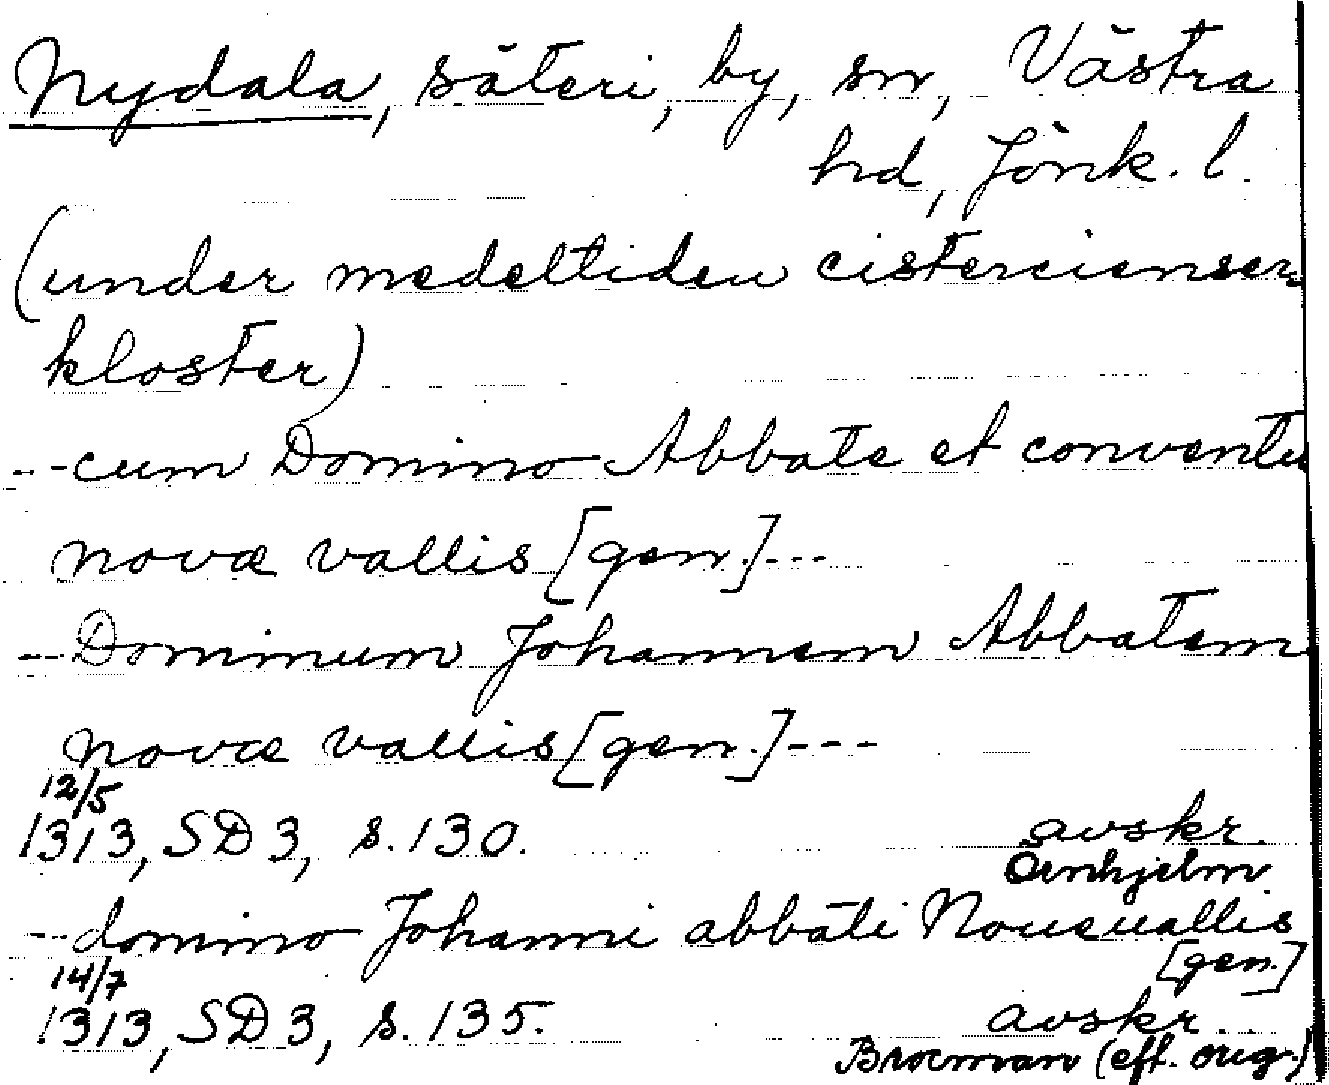 Nydala, säteri, by, sn, Västra
hd, Jönk. l.
(under medeltiden cistercienser
kloster)
---cum Domino Abbate et conventu
novæ vallis [gen.]---
---Dominum Johannem Abbatem
novæ vallis [gen.]---
12/5
1313, SD 3, s. 130. avskr.
Örnhjelm
---domino Johanni abbati Noueuallis
[gen.]
14/7
1313, SD 3, s. 135. avskr.
Broman (eft. orig.)